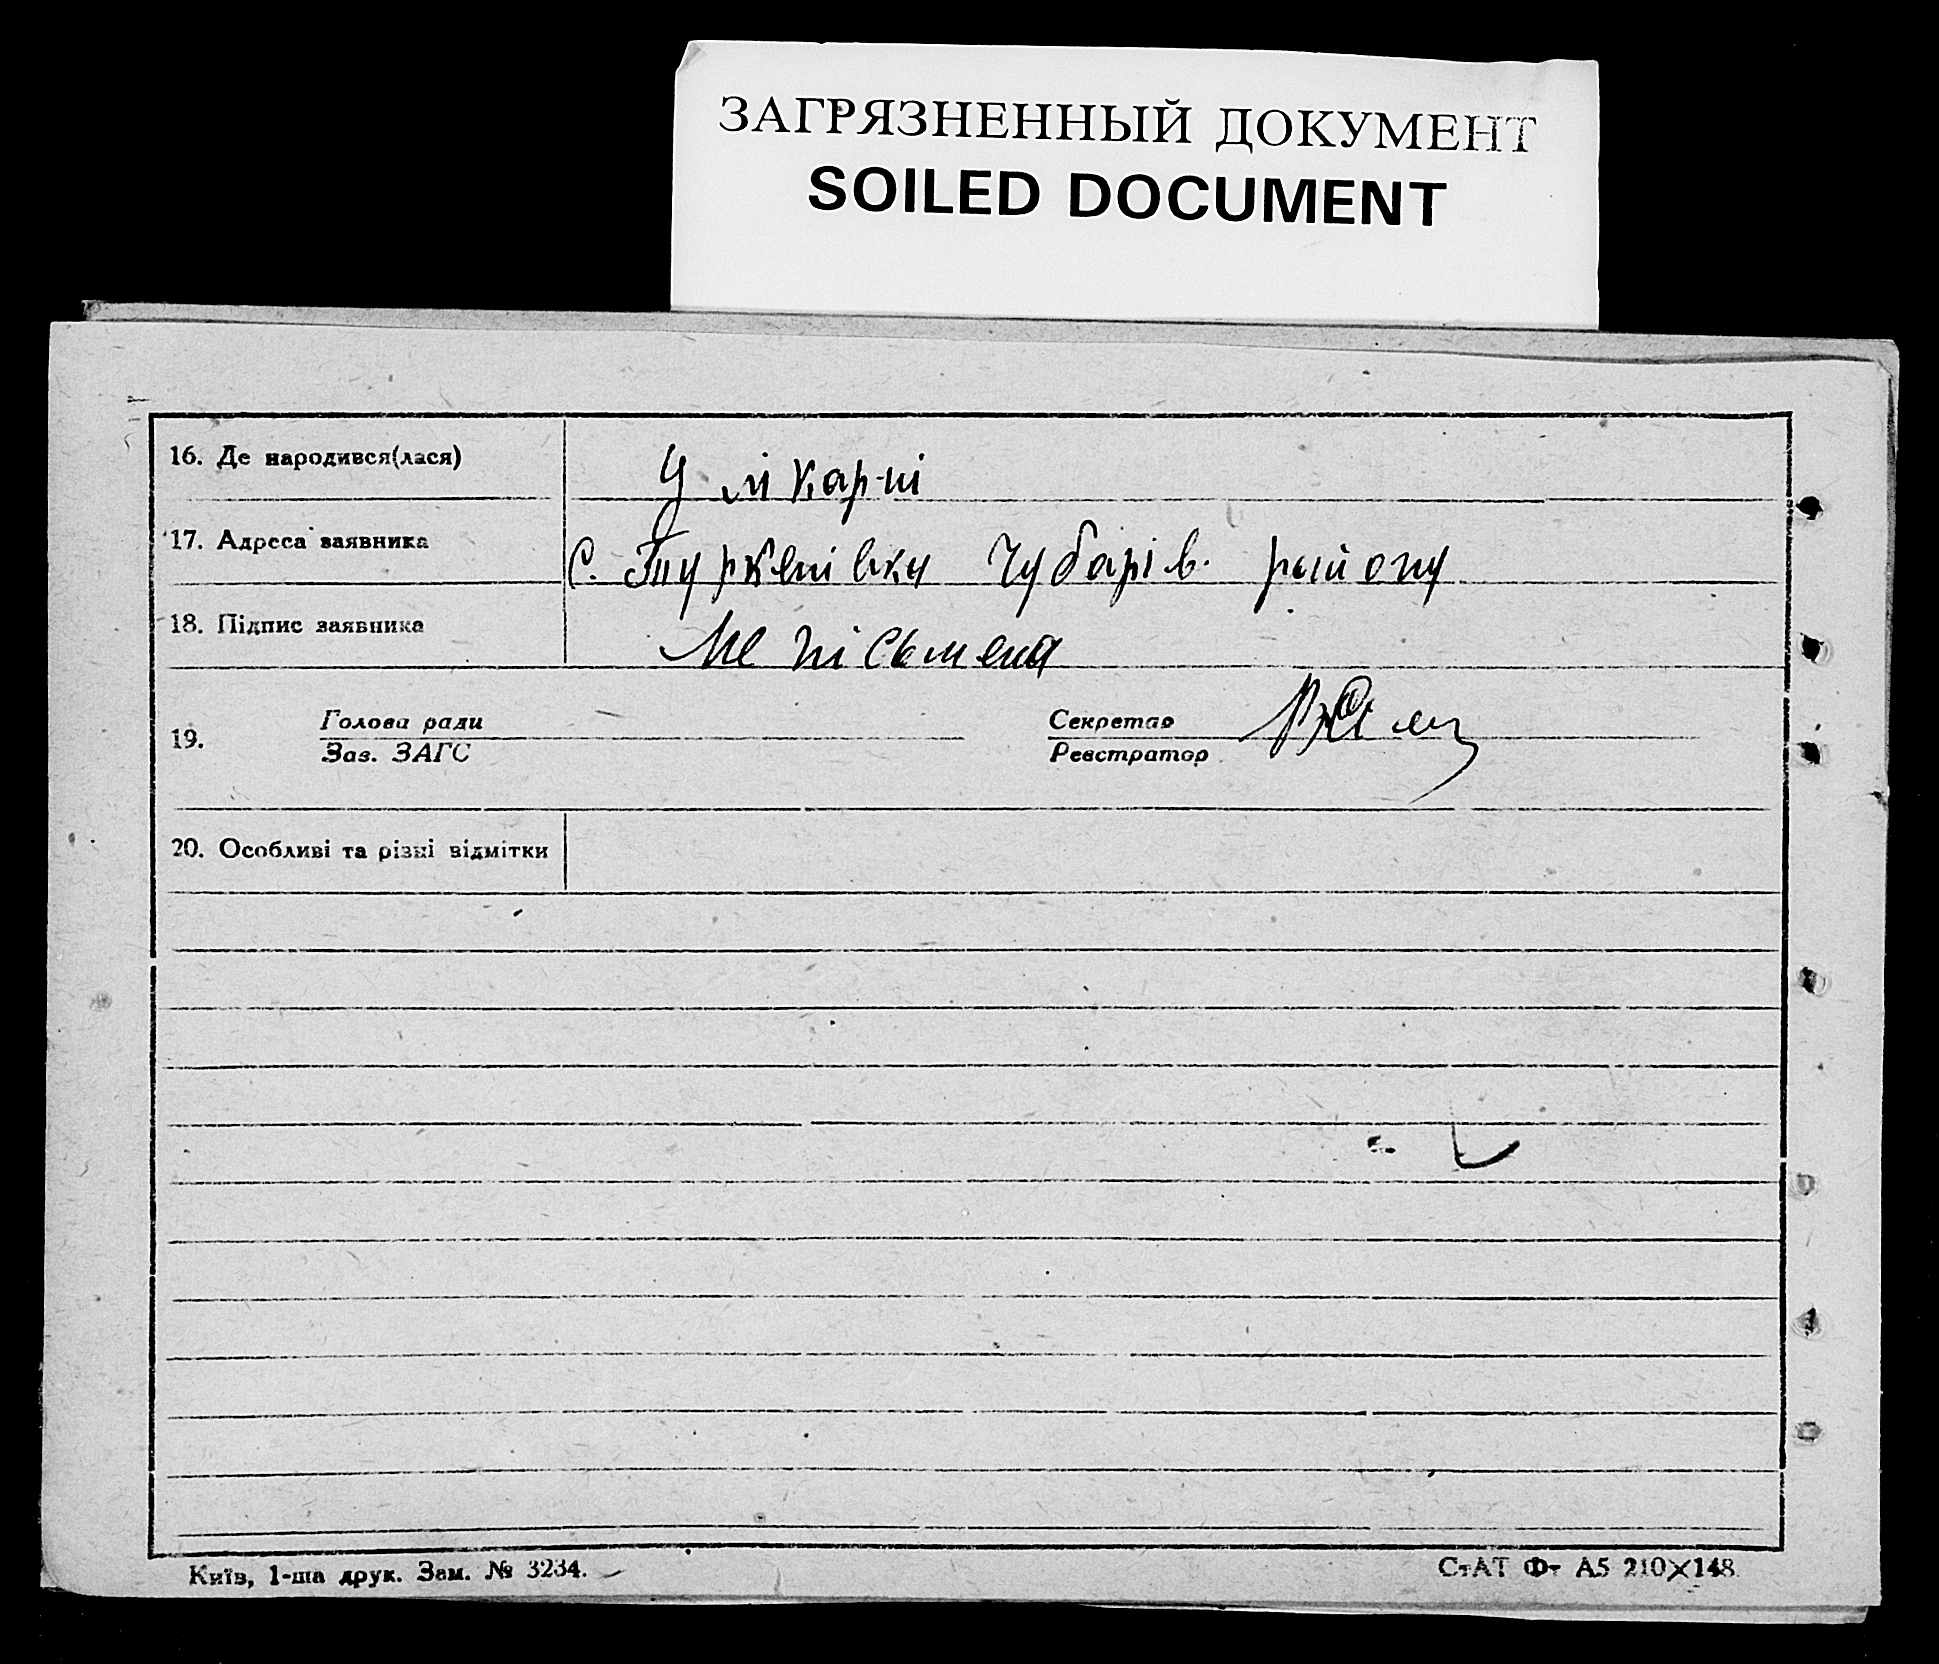 ЗАГРЯЗНЕННЫЙ ДОКУМЕНТ
SOILED DOCUMENT
16. Де народився(лася) У лікарні
17. Адреса заявника с. Туркенівка Чубарів. району
18. Підпис заявника Не пісьмена
19. Голова ради Секретар
Зав. ЗАГС Реєстратор
20. Особливі та різні відмітки
Київ, 1-ша друк. Зам. № 3234. СтАТ Фт А5 210×148